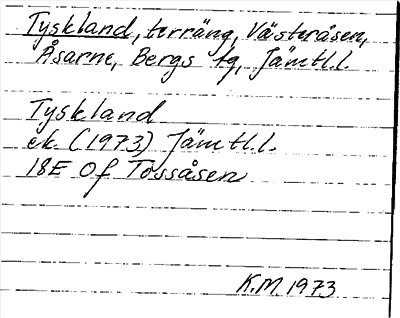 Tyskland, terräng, Västeråsen,
Åsarne, Bergs tg, Jämtl.l
Tyskland
ek. (1973) Jämtl.l.
18E 0f Tossåsen
K.M. 1973